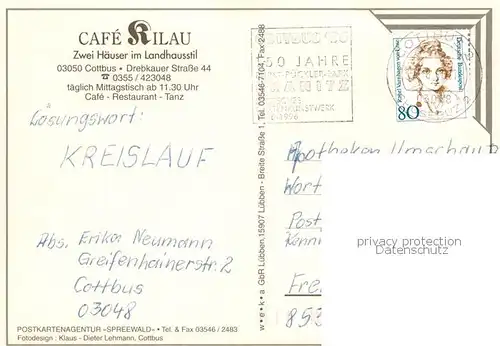 CAFÉ KILAU
Zwei Häuser im Landhausstil
03050 Cottbus • Drebkauer Straße 44
☎ 0355 / 423048
täglich Mittagstisch ab 11.30 Uhr
Café - Restaurant - Tanz
Lösungswort:
KREISLAUF
Abs. Erika Neumann
Greifenhainerstr. 2
Cottbus
03048
POSTKARTENAGENTUR »SPREEWALD« • Tel. & Fax 03546 / 2483
Fotodesign : Klaus - Dieter Lehmann, Cottbus
w•e•k•a GbR Lübben, 15907 Lübben - Breite Straße 1, Tel. 03546-7104, Fax-2488
50 JAHRE
Deutsche Bundespost
80
Apotheken Umschau
Wort
Post
Kenn
Fre
853
privacy protection
Datenschutz